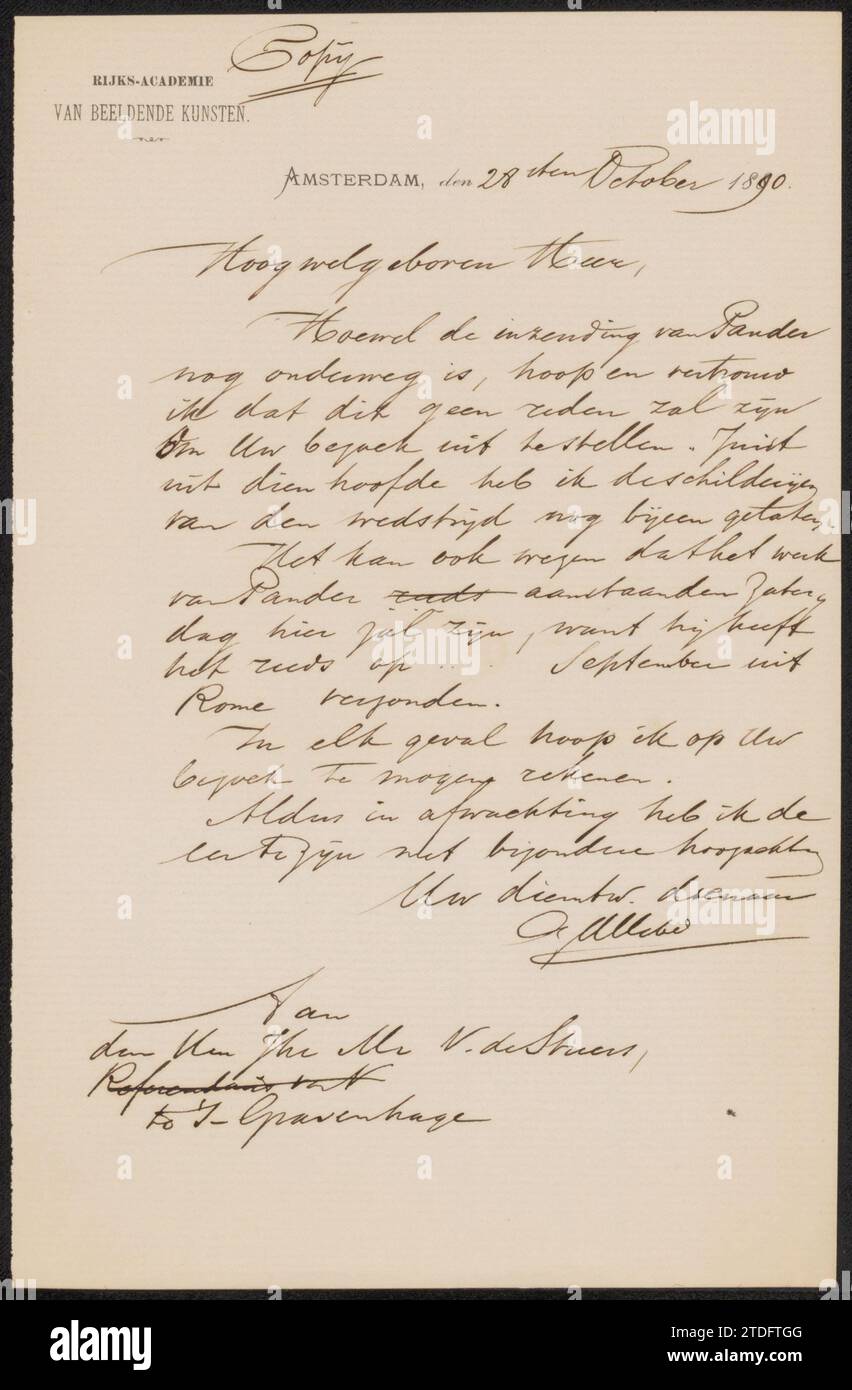 Copy
RIJKS-ACADEMIE
VAN BEELDENDE KUNSTEN.
AMSTERDAM, den 28sten October 1890.
Hoogwelgeboren Heer,
Hoewel de inzending van Pander
nog onderweg is, hoop en vertrouw
ik dat dit geen reden zal zijn
om Uw bezoek uit te stellen. Juist
uit dien hoofde heb ik de schilderijen
van den wedstrijd nog bijeen gelaten.
Het kan ook wezen dat het werk
van Pander reeds aanstaanden Zater-
dag hier zal zijn, want hij heeft
het reeds op ... September uit
Rome verzonden.
In elk geval hoop ik op Uw
bezoek te mogen rekenen.
Aldus in afwachting heb ik de
eer te zijn met bijzondere hoogachting
Uw dienstw. dienaar
Allebé
Aan
den Heer Jhr Mr V. de Stuers,
Referendaris van
te 's-Gravenhage
alamy
Image ID: 2TDFTGG
www.alamy.com